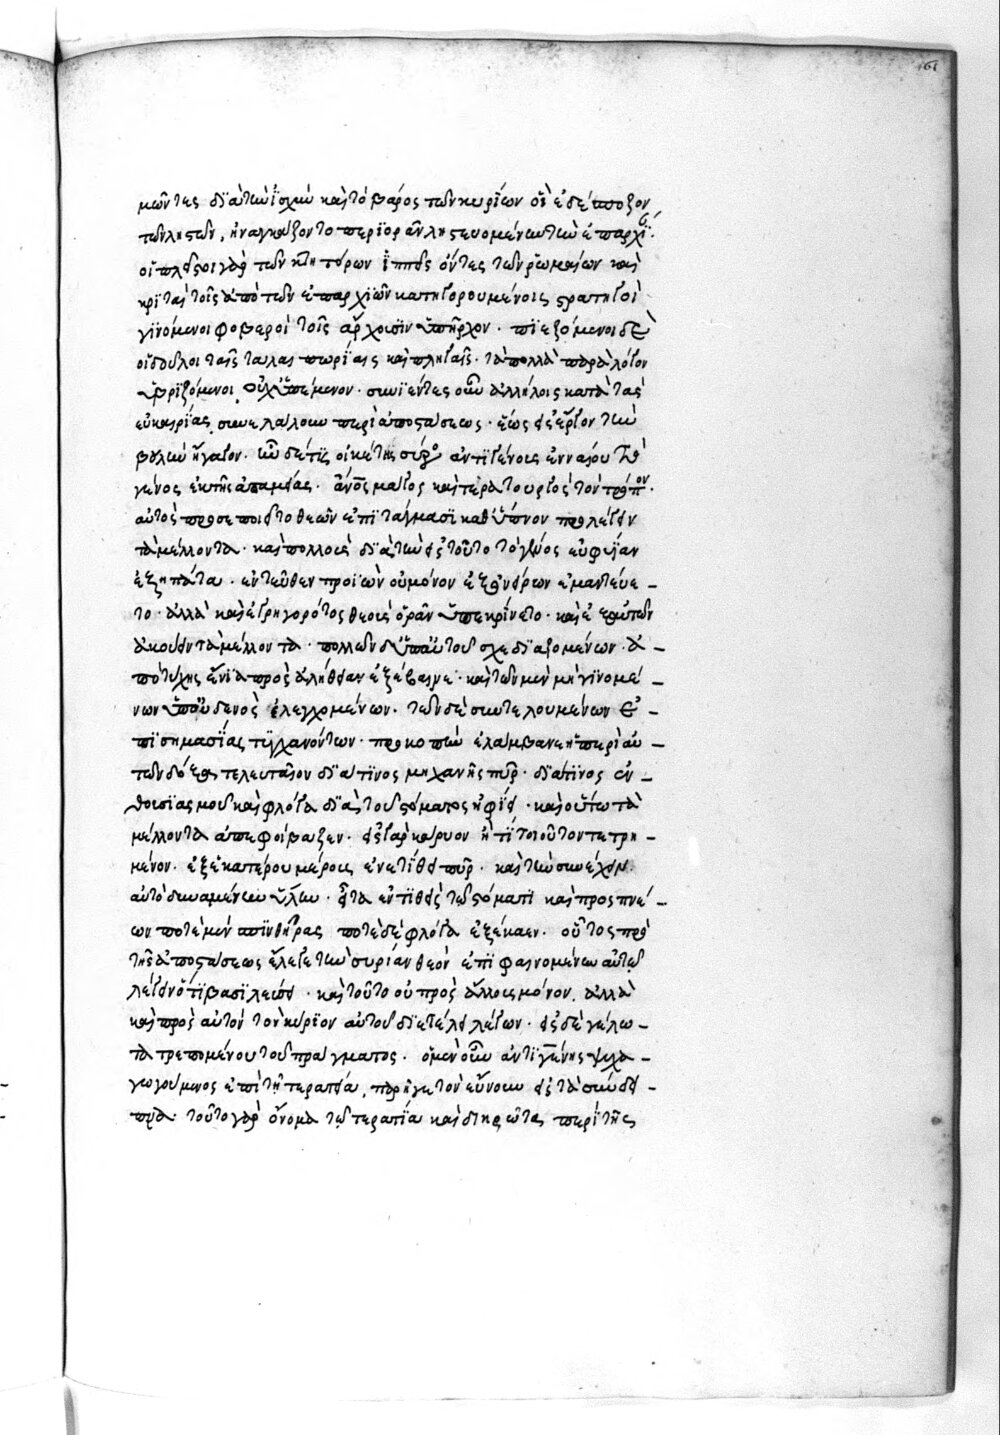 161
μῶντες διὰ τὴν ἰσχὺν καὶ τὸ βάρος τῶν κυρίων οἳ ἐδέσποζον
τῶν ληστῶν, ἠναγκάζοντο περιορᾶν ληστευομένην τὴν ἐπαρχί.
οἱ πλεῖστοι γὰρ τῶν κτητόρων ἱππεῖς ὄντες τῶν ῥωμαίων καὶ
κριταὶ τοῖς ἀπὸ τῶν ἐπαρχιῶν κατηγορουμένοις στρατηγοὶ
γινόμενοι φοβεροὶ ταῖς ἀρχαῖσιν ὑπῆρχον. πιεζόμενοι δὲ
οἱ δοῦλοι ταῖς ταλαιπωρίαις καὶ πληγαῖς. τὰ πολλὰ παρὰ λόγον
ὑβριζόμενοι, οὐχ ὑπέμενον. συνιέντες οὖν ἀλλήλοις κατὰ τὰς
εὐκαιρίας, συνελάλουν περὶ ἀποστάσεως. ἕως εἰς ἔργον τὴν
βουλὴν ἤγαγον. ἦν δέ τις οἰκέτης σύρος ἀντιγένους ἐνναίου τὸ
γένος ἐκ τῆς ἀπαμείας. ἄνος μάγος καὶ τερατουργὸς τὸν τρόπον.
αὐτὸς προσεποιεῖτο θεῶν ἐπιτάγμασι καθ' ὕπνον προλέγειν
τὰ μέλλοντα. καὶ πολλοὺς διὰ τὴν εἰς τοῦτο τὸ γένος εὐφυΐαν
ἐξηπάτα. ἐντεῦθεν προϊὼν οὐ μόνον ἐξ ὀνείρων ἐμαντεύε-
το. ἀλλὰ καὶ ἐγρηγορότος θεοὺς ὁρᾶν ὑπεκρίνετο. καὶ ἐξ αὐτῶν
ἀκούειν τὰ μέλλοντα. πολλῶν δ' ὑπ' αὐτοῦ σχεδιαζομένων. ἀ-
πὸ τύχης ἔνια πρὸς ἀλήθειαν ἐξέβαινε. καὶ τῶν μὲν μὴ γινομέ-
νων ὑπ' οὐδενὸς ἐλεγχομένων. τῶν δὲ συντελουμένων ἐ-
πισημασίας τυγχανόντων. προκοπὴν ἐλάμβανεν ἡ περὶ αὐ-
τῶν δόξα τελευταῖον διά τινος μηχανῆς πῦρ. διά τινος ἐν-
θουσίας μοῦ καὶ φλόγα διὰ τοῦ στόματος ἠφίει. καὶ οὕτω τὰ
μέλλοντα ἀπεφοίβαζεν. εἰς γὰρ κάρυον ἤ τι τοιοῦτον τετρη-
μένον. ἐξ ἑκατέρου μέρους ἐνετίθει πῦρ. καὶ τὴν συνέχειν
αὐτὸ δυναμένην ὕλην. εἶτα ἐντιθεὶς τῷ στόματι καὶ προσπνέ-
ων ποτὲ μὲν σπινθῆρας ποτὲ δὲ φλόγα ἐξέκαεν. οὗτος πρὸ
τῆς ἀποστάσεως ἔλεγε τὴν συρίαν θεὸν ἐπιφαινομένην αὐτῷ
λέγειν ὅτι βασιλεύσει. καὶ τοῦτο οὐ πρὸς ἄλλους μόνον, ἀλλὰ
καὶ πρὸς αὐτὸν τὸν κύριον αὐτοῦ διετέλει λέγων. εἰς δὲ γέλω-
τα τρεπομένου τοῦ πράγματος. ὁ μὲν οὖν ἀντιγένης ψυχα-
γωγούμενος ἐπὶ τῇ τερατεία, παρῆγε τὸν εὔνουν εἰς τὰ σύνδει-
πνα. τοῦτο γὰρ ὄνομα τῷ τερατία καὶ διηρώτας περὶ τῆς